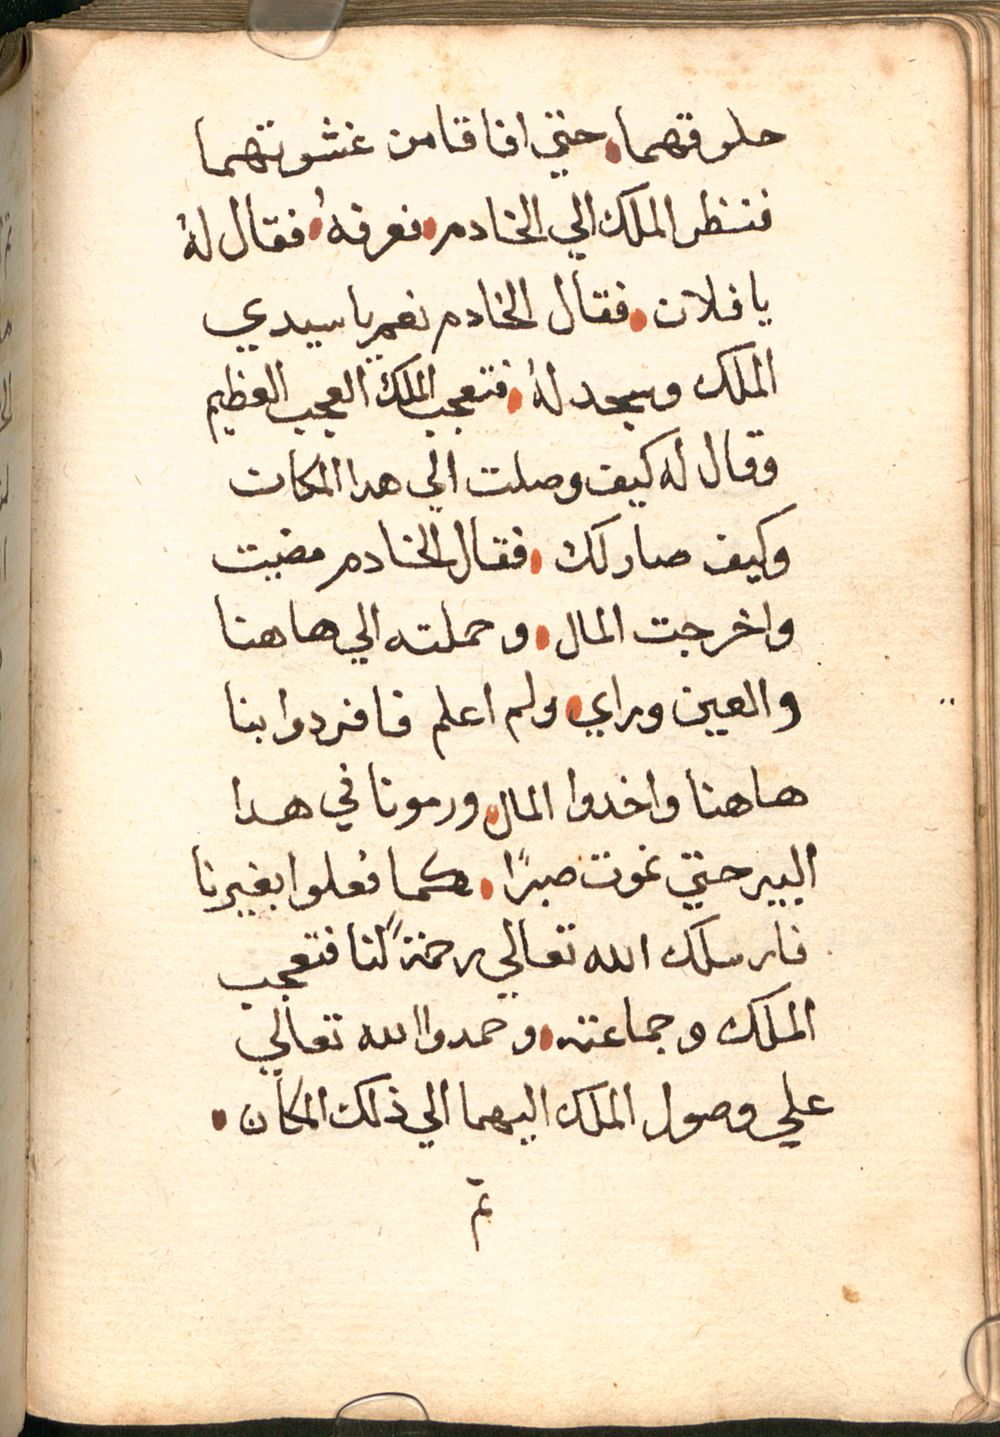 حلوقهما. حتي افاقا من غشوتهما
فنظر الملك الي الخادم. فعرفهُ. فقال لهُ
يا فلان. فقال الخادم نعم يا سيدي
الملك وسجد لهُ. فتعجب الملك العجب العظيم
وقال له كيف وصلت الي هدا المكان
وكيف صار لك. فقال الخادم مضيت
واخرجت المال. وحملته الي هاهنا
والعين وراي. ولم اعلم فافردوا بنا
هاهنا واخدوا المال. ورمونا في هدا
البير حتي نموت صبرًا. كما فعلوا بغيرنا
فارسلك الله تعالي رحمةً لنا فتعجب
الملك وجماعته. وحمدوا الله تعالي
علي وصول الملك اليهما الي ذلك المكان.
تم